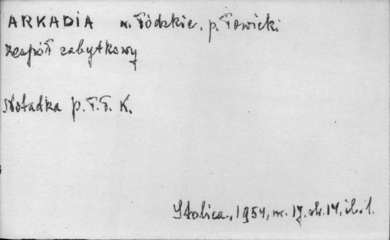 ARKADIA w. Łódzkie, p. Łowicki
Zespół zabytkowy
Notatka p. T.T. K.
Stolica, 1954, nr. 17, st. 14, il. 1.